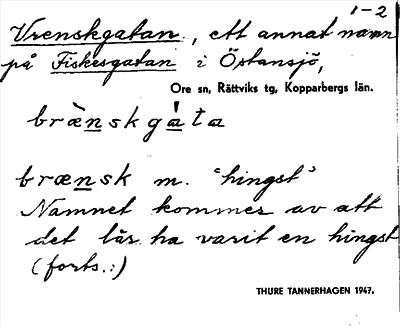 1-2
Vrenskgatan, ett annat namn
på Fiskesgatan i Östansjö,
Ore sn, Rättviks tg, Kopparbergs län.
bræ̀nskgáta
brænsk m. "hingst"
Namnet kommer av att
det lär ha varit en hingst
(forts.:)
THURE TANNERHAGEN 1947.